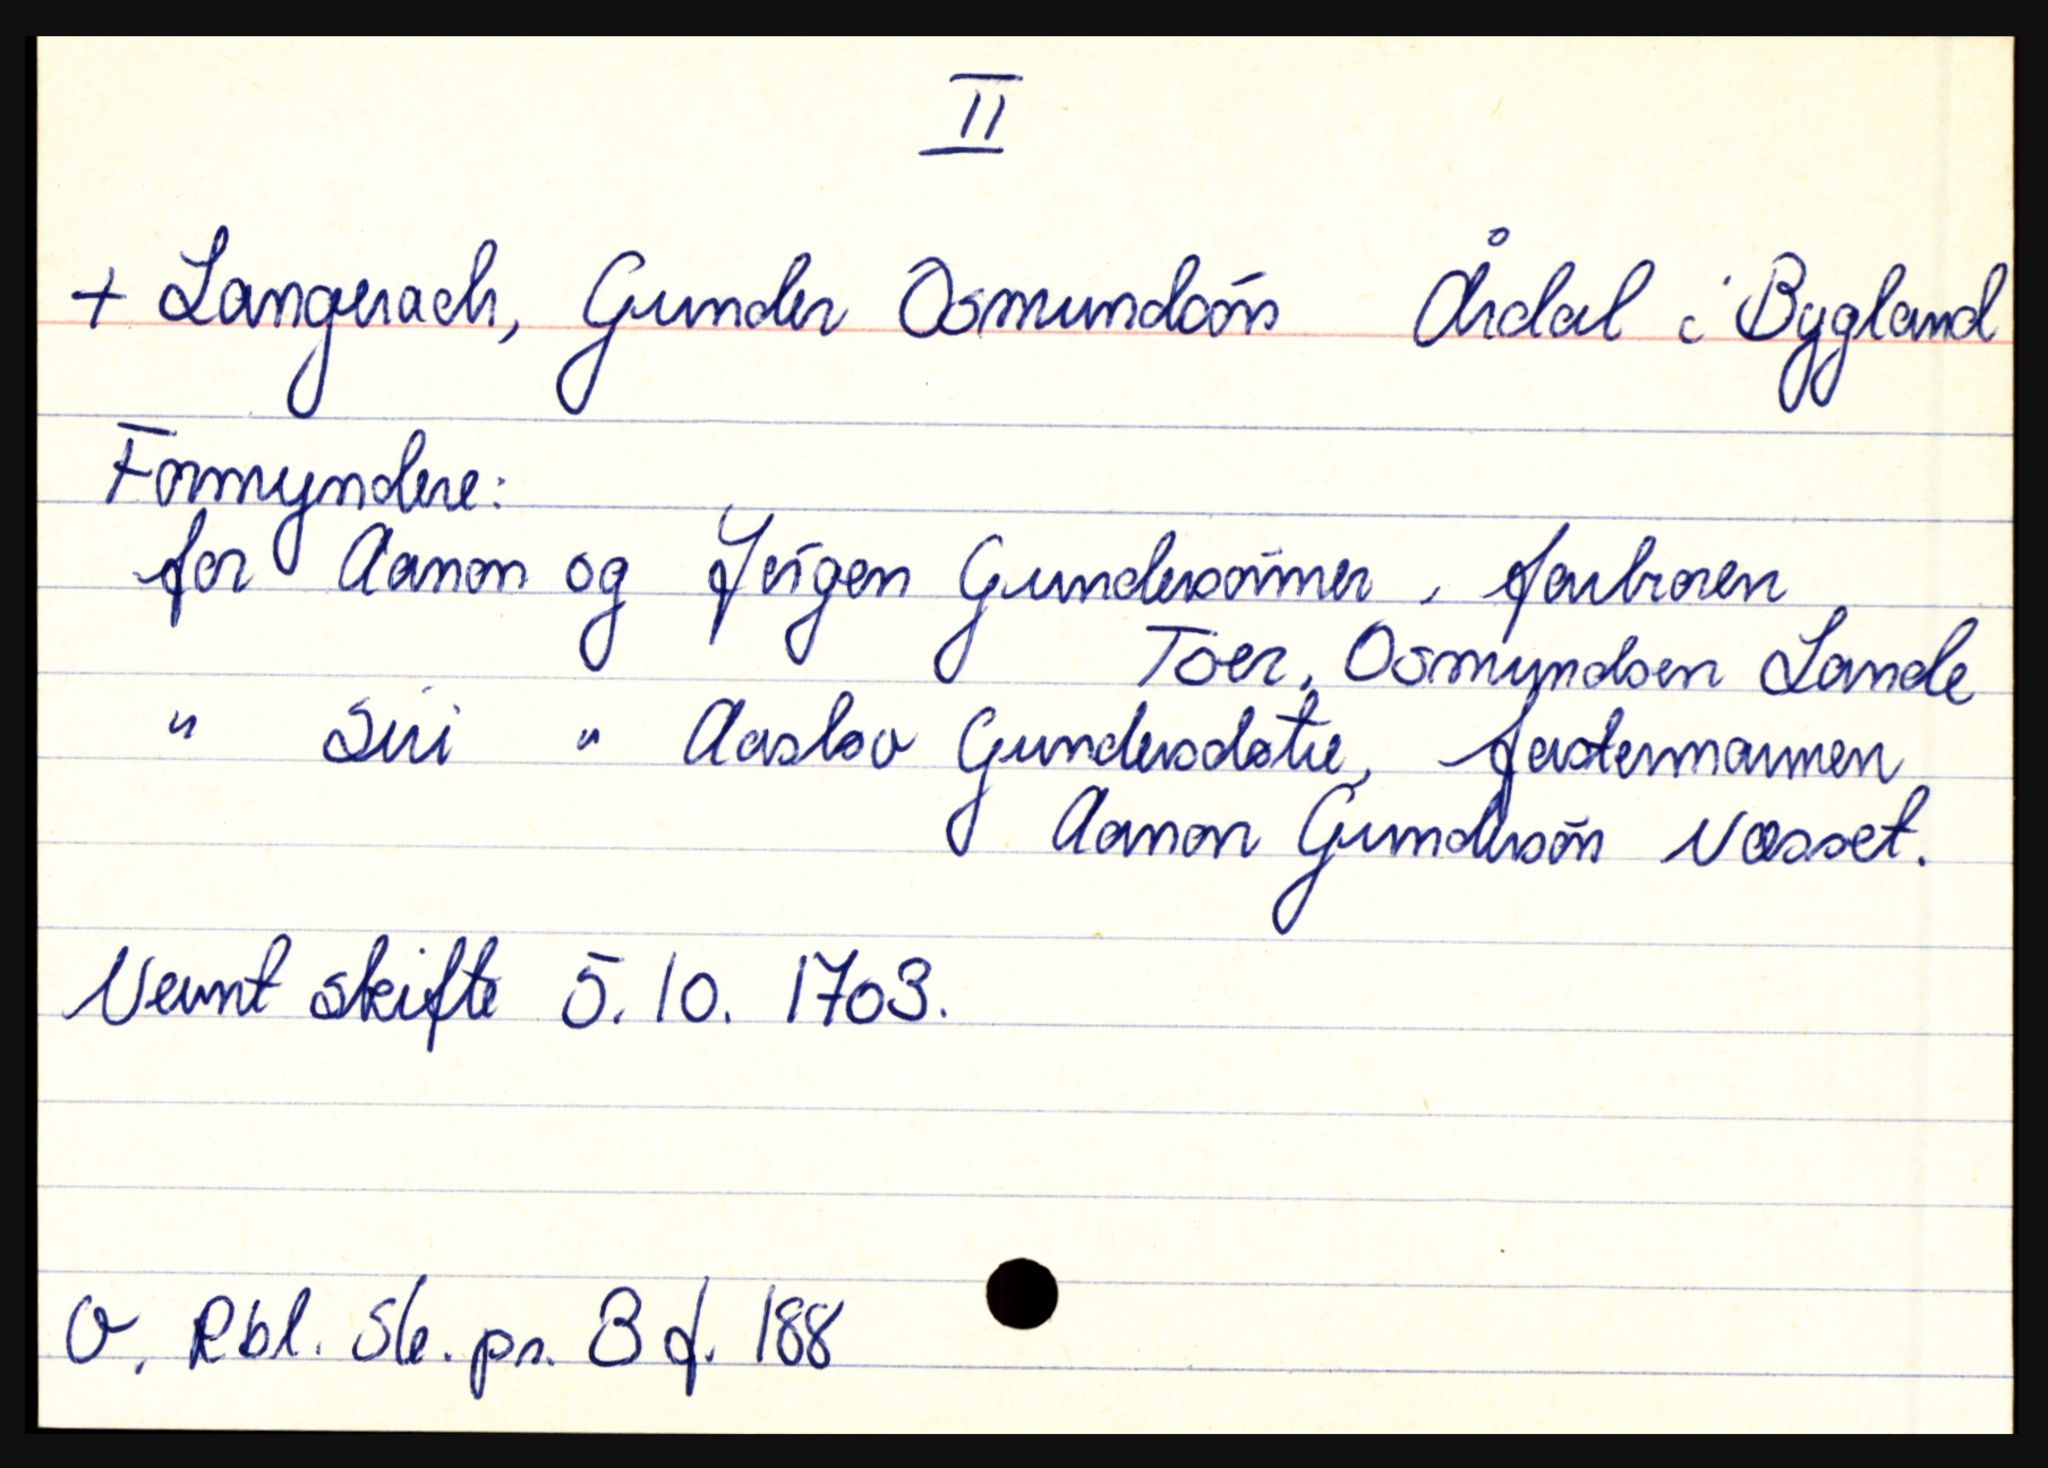 II
+ Langerach, Gunder Osmundsøn Årdal i Bygland
Formyndere:
for Aanon og Jørgen Gundersønner, farbroren
Toer, Osmundsen Lande
" Siri " Aaslov Gundersdatre, fastermannen
Aanon Gundersøn Næsset.
Nevnt skifte 5.10. 1703.
O. Rbl. Sk.pr. 3 f. 188